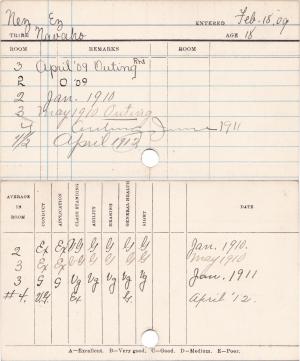 Nez Ez ENTERED Feb-18,09
TRIBE Navaho AGE 18
ROOM REMARKS ROOM
3 April '09 Outing Rtd
2 O '09
2 Jan. 1910
3 May 1910 Outing
4 Outing June 1911
4/2 April 1912
AVERAGE IN ROOM CONDUCT APPLICATION CLASS STANDING ABILITY READING GENERAL HEALTH SIGHT DATE
2 Ex Ex VG G G G G Jan. 1910.
3 Ex Ex G G G G May 1910
3 G G Vg Vg Vg Vg Vg Jan. 1911
#4. V.G. Ex G. April '12.
A—Excellent. B—Very good. C—Good. D—Medium. E—Poor.